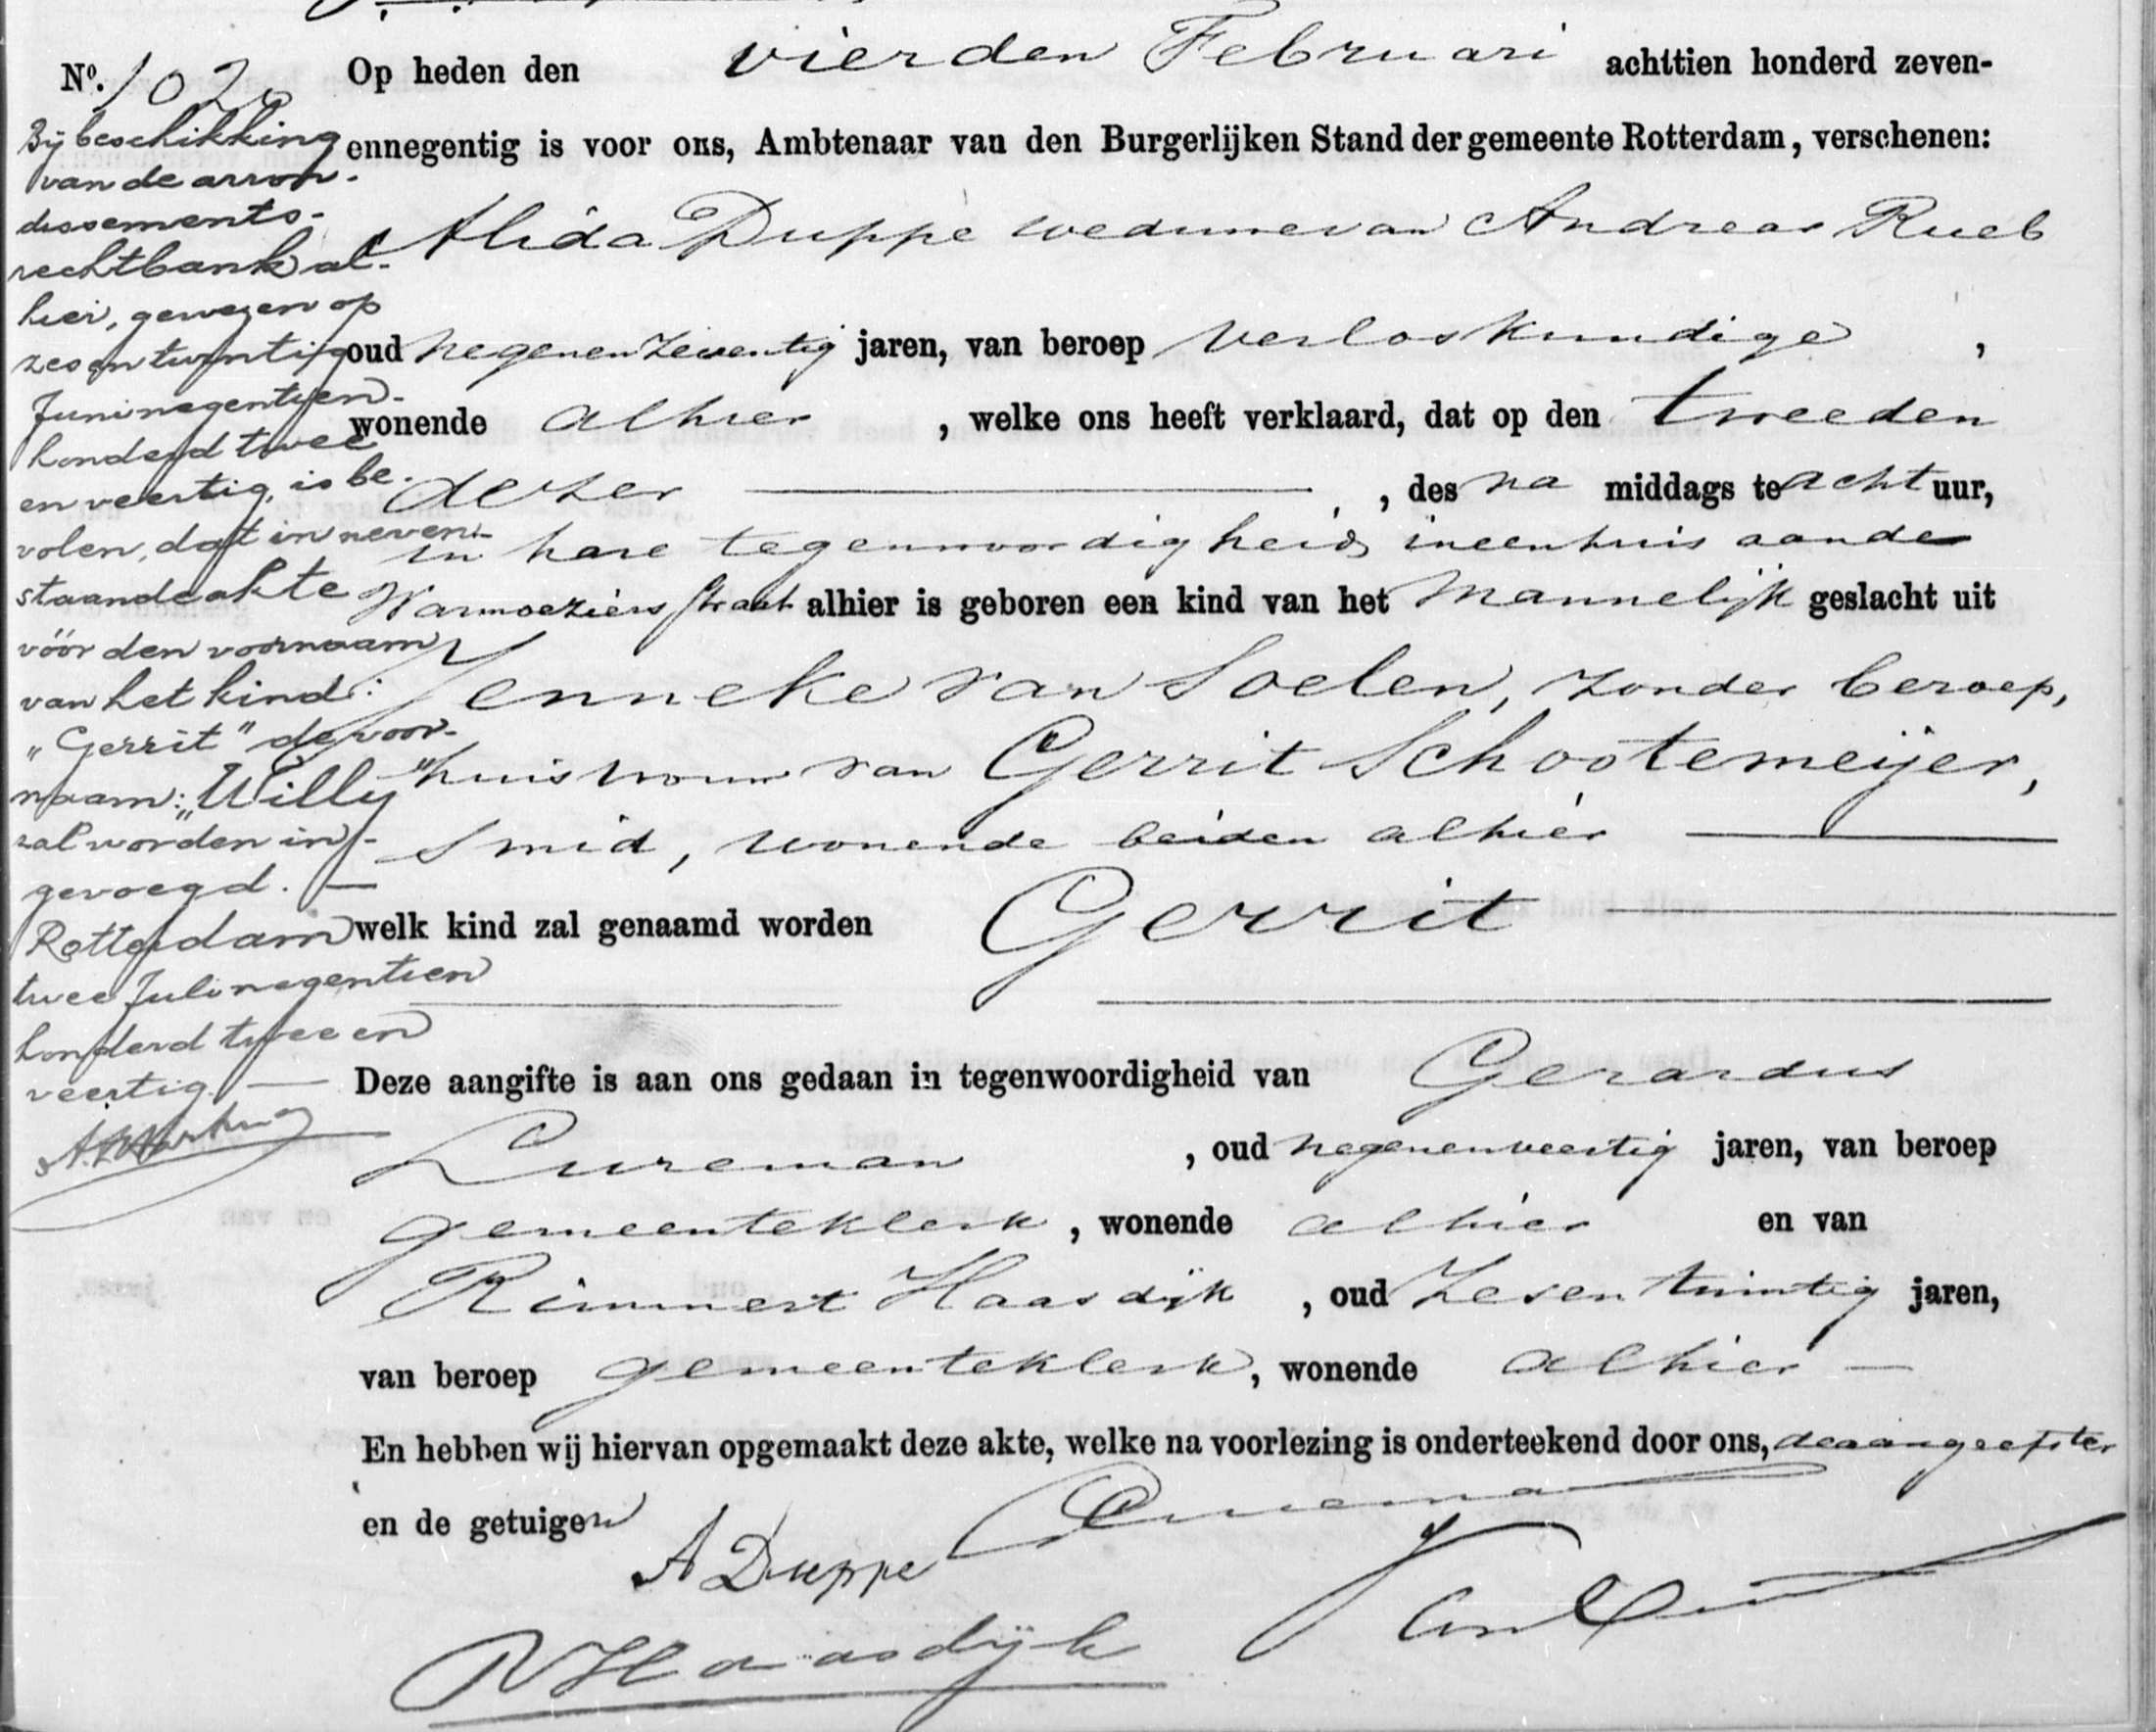 Nº. 102
Bij beschikking
van de arron-
dissements-
rechtbank al-
hier, gewezen op
zes en twintig
Juni negentien-
honderd twee
en veertig, is be-
volen, dat in neven-
staande akte
vóór den voornaam
van het kind:
„Gerrit" de voor-
naam: „Willy"
zal worden in-
gevoegd. —
Rotterdam
twee Juli negentien
honderd twee en
veertig. —
Op heden den vierden Februari achttien honderd zeven-
ennegentig is voor ons, Ambtenaar van den Burgerlijken Stand der gemeente Rotterdam, verschenen:
Alida Duppe weduwe van Andreas Rueb
oud negenenzeventig jaren, van beroep Verloskundige ,
wonende alhier , welke ons heeft verklaard, dat op den tweeden
dezer — , des na middags te acht uur,
in hare tegenwoordigheid, in een huis aan de
Warmoeziersstraat alhier is geboren een kind van het Mannelijk geslacht uit
Jenneke van Soelen, zonder beroep,
huisvrouw van Gerrit Schootemeijer,
Smid, wonende beiden alhier —
welk kind zal genaamd worden Gerrit —
Deze aangifte is aan ons gedaan in tegenwoordigheid van Gerardus
Lureman , oud negenenveertig jaren, van beroep
gemeenteklerk , wonende alhier en van
Rimmert Haasdijk , oud Zesentwintig jaren,
van beroep gemeenteklerk , wonende alhier —
En hebben wij hiervan opgemaakt deze akte, welke na voorlezing is onderteekend door ons, de aangeefster
en de getuigen
A Duppe
R Haasdijk